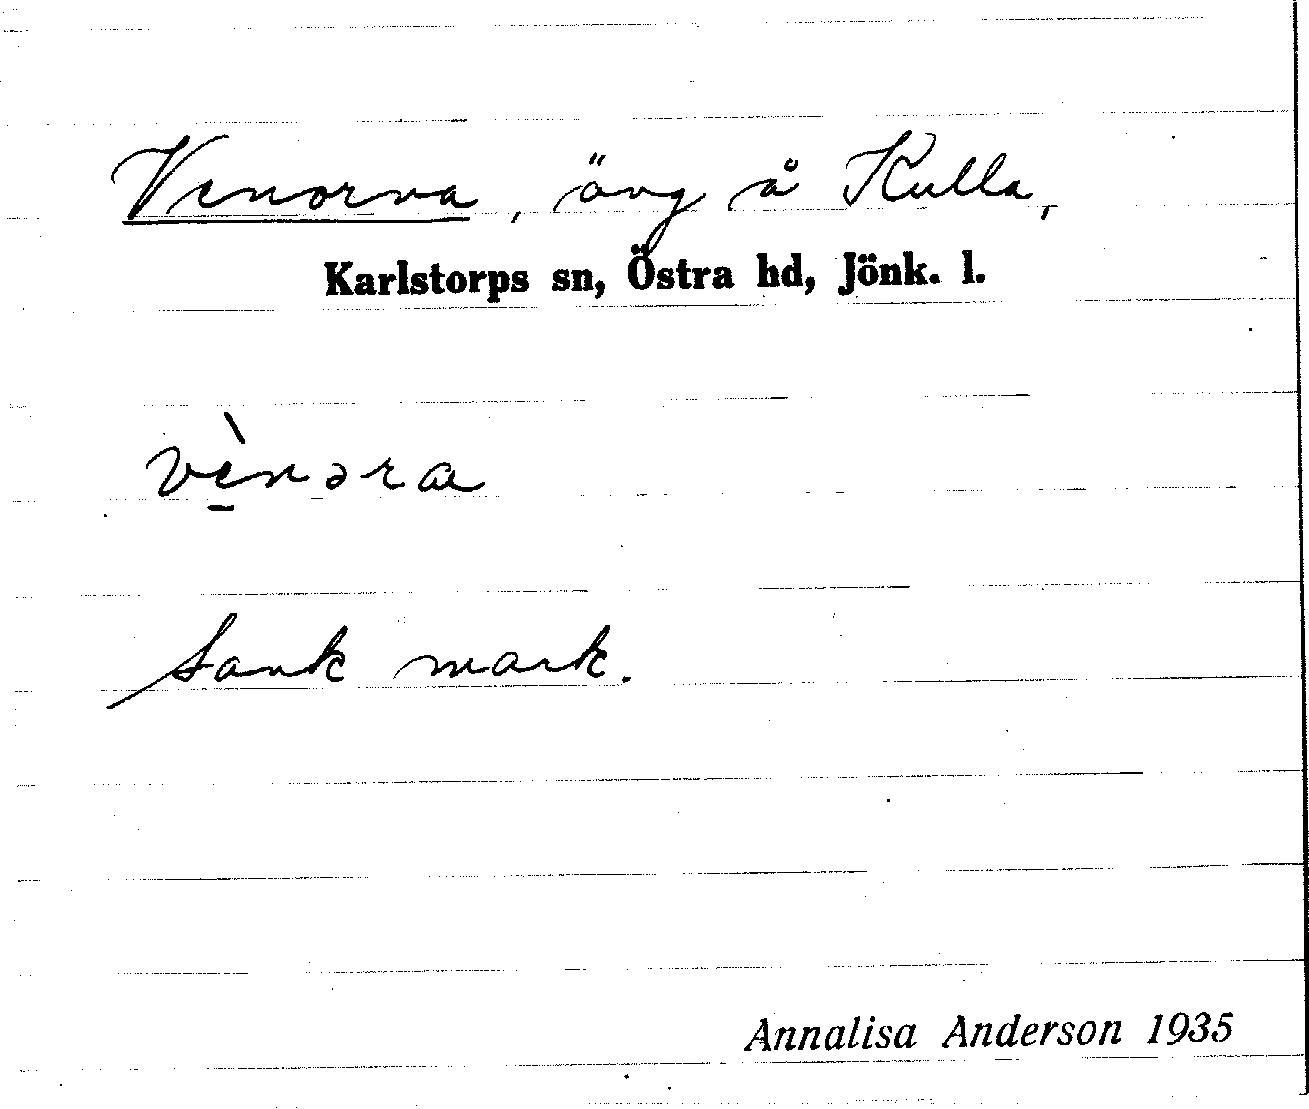 Venorna, äng å Kulla,
Karlstorps sn, Östra hd, Jönk. l.
vè̠nəra
Sank mark.
Annalisa Anderson 1935